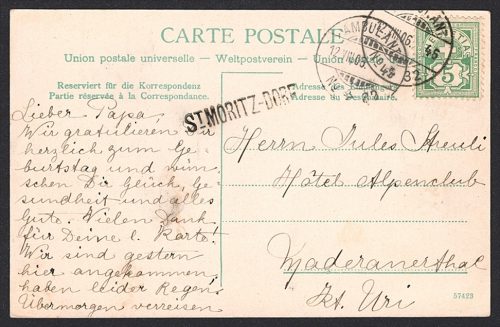 CARTE POSTALE
Union postale universelle. - Weltpostverein - Unione
Reservirt für die Korrespondenz
Partie réservée à la Correspondance.
ST. MORITZ-DORF
AMBULANT
12.VIII.05
No. 45
5
Lieber Papa,
Wir gratulieren Dir
herzlich zum Ge-
burtstag und wün-
schen Dir Glück, Ge-
sundheit und alles
Gute. Vielen Dank
für Deine l. Karte!
Wir sind gestern
hier angekommen,
haben leider Regen.
Übermorgen verreisen
Herrn Jules Steuli
Hôtel Alpenclub
Maderanerthal
Kt. Uri
57423